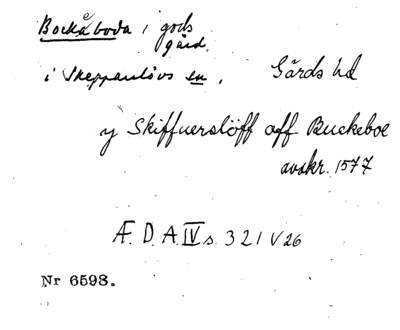 Bockåboda i gods
gård.
i Skepparslövs sn, Gärds hd
y Skiffuerslöff aff Buckeboe
avskr. 1577
Æ. D. A. IV s. 321 V26
Nr 6593.